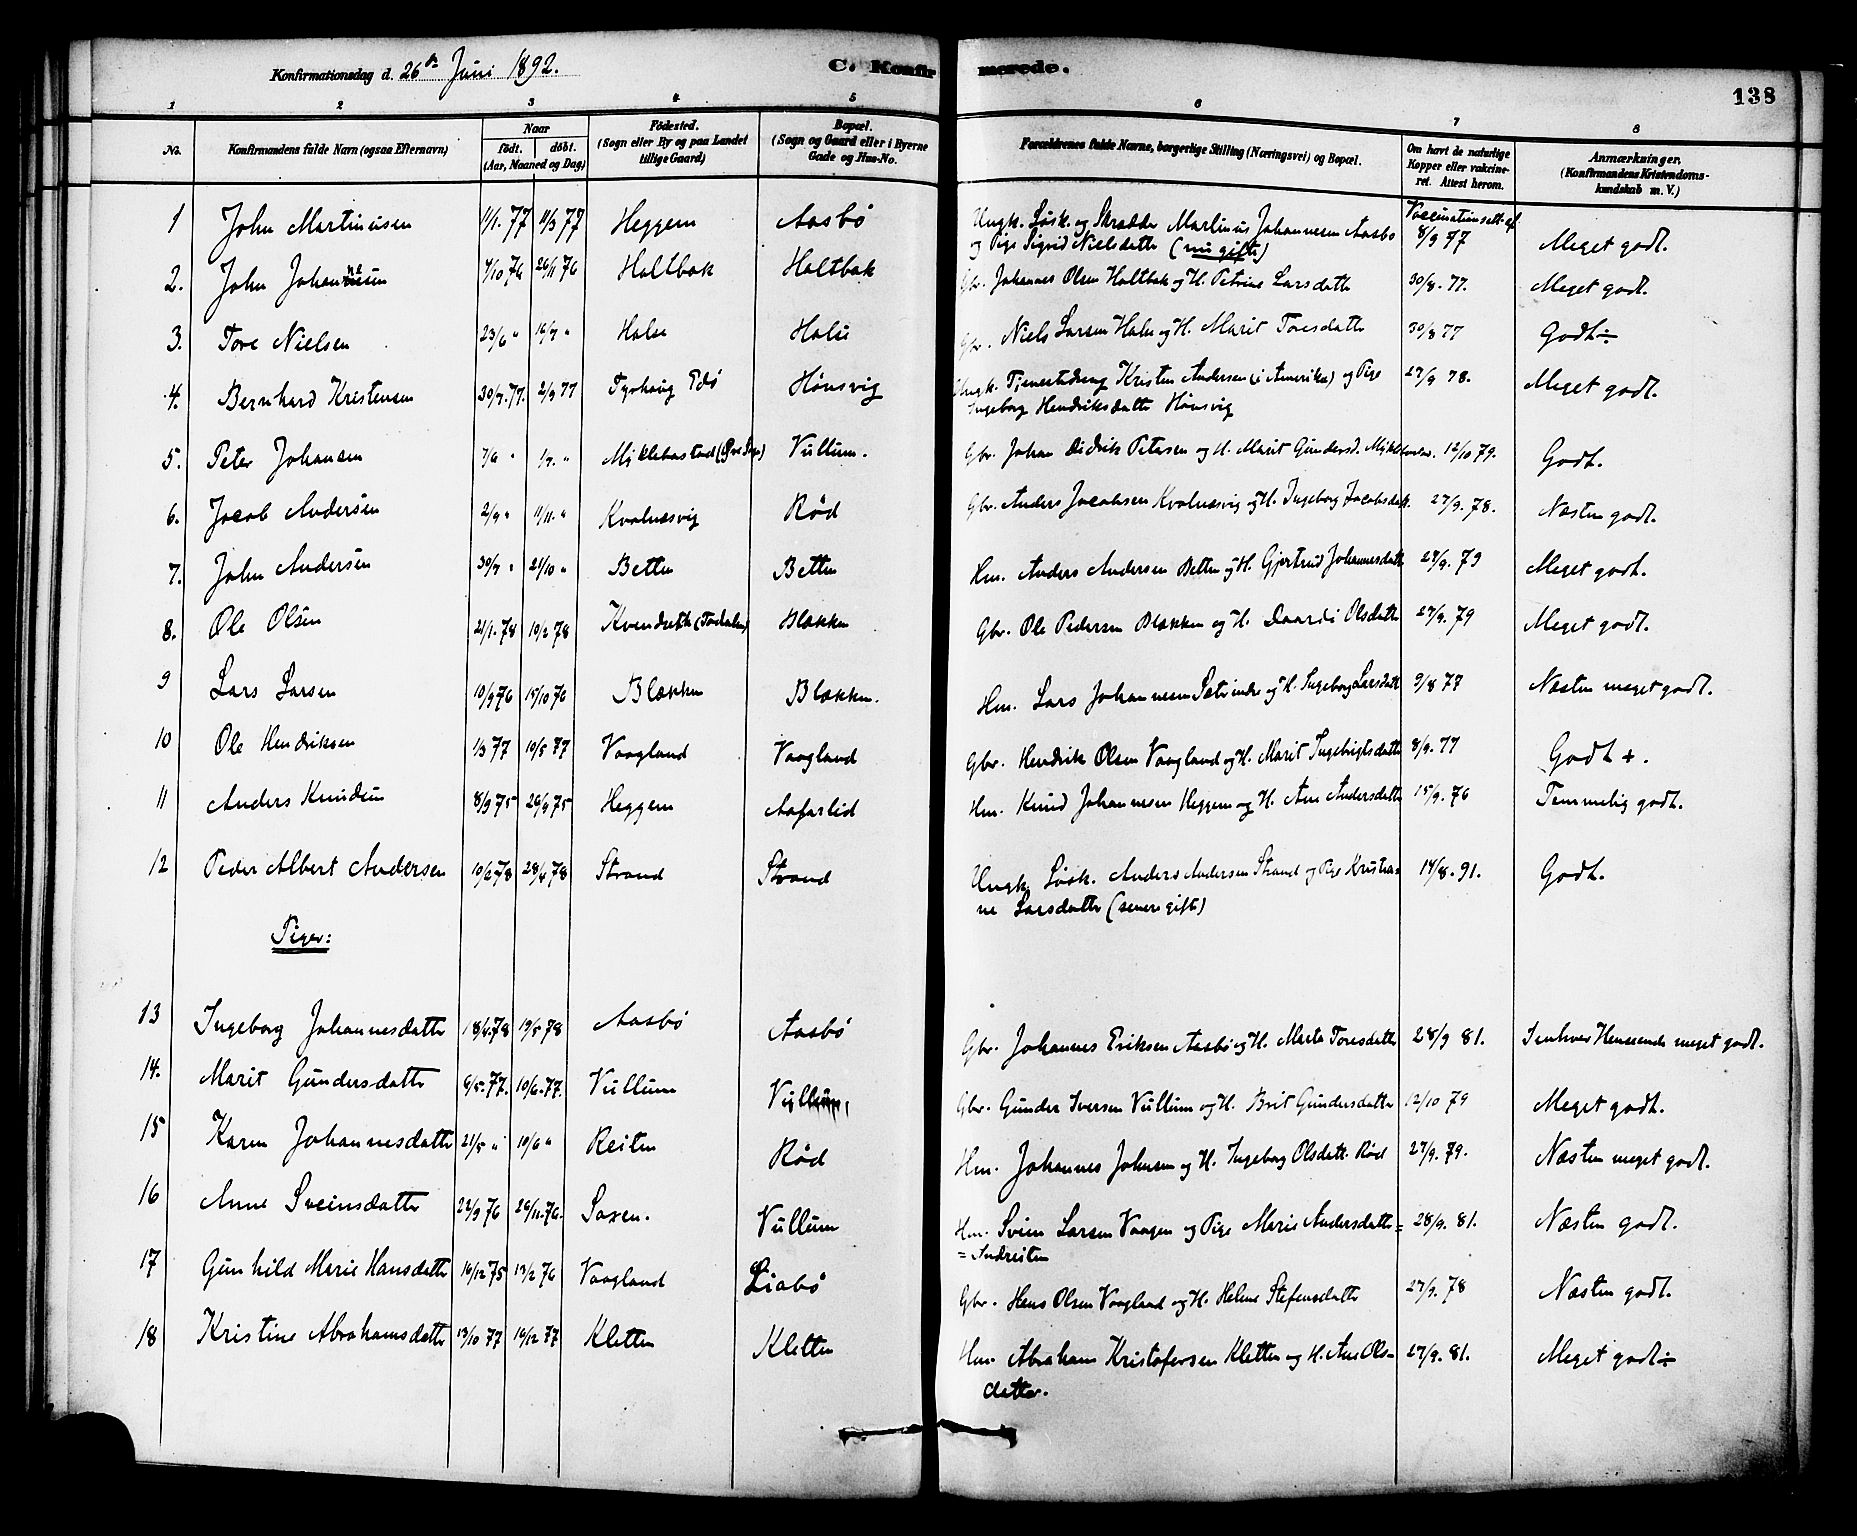 Konfirmationsdag d. 26de Juni 1892. C. Konfirmerede. 138
1 2 3 4 5 6 7 8
No. Konfirmandens fulde Navn (ogsaa Efternavn) Naar født. døbt. (Aar, Maaned og Dag) Fødested. (Sogn eller By og paa Landet tillige Gaard) Bopæl. (Sogn og Gaard eller i Byerne Gade og Hus-No. Forældrenes fulde Navne, borgerlige Stilling (Næringsvei) og Bopæl. Om havt de naturlige Kopper eller vakcineret. Attest herom. Anmærkninger. (Konfirmandens Kristendomskundskab m. V.)
1 John Martinusen 11/1. 77 11/3 77 Heggem Aasbø Ungk. Løsk. og Skrædder Martinus Johannesen Aasbø Vaccinationsatt. af
og Pige Sigrid Nielsdatter (nu gifte) 8/9 77 Meget godt.
2. John Johannesen 7/10 76 26/11 76 Holtbak Holtbak Gbr. Johannes Olsen Holtbak og H. Petrine Larsdatter 30/8. 77. Meget godt.
3. Tore Nielsen 23/6 " 16/7 " Halse Halse Gbr. Niels Larsen Halse og H. Marit Toresdatter 30/8 77 Godt ÷
4. Bernhard Kristensen 30/7. 77. 2/9 77 Tyrhaug Edø Hønsvig Ungk. Tjenestedreng Kristen Andersen (i Amerika) og Pige 27/9 78. Meget godt.
Ingeborg Hendriksdatter Hønsvig
5. Peter Johansen 7/6 " 1/7. " Myklebostad Vullum. Gbr. Johan Didrik Petersen og H. Marit Gundersd. 12/10 79. Godt.
6. Jacob Andersen 2/9 " 11/11. " Kvalnæsvig Rød Gbr. Anders Jacobsen Kvalnæsvig og H. Ingeborg Jacobsdatt. 27/9. 78. Næsten godt.
7. John Andersen 30/7 " 21/10 " Betten Betten Hm. Anders Andersen Betten og H. Gjertrud Johannesdatter 27/9. 79 Meget godt.
8. Ole Olsen 21/1. 78 10/2 78 Blekken Gbr. Ole Pedersen Blækken og H. Olsdatter 27/9. 79 Meget godt.
9 Lars Larsen 10/9 76 15/10 76 Blækken Blækken. Hm. Lars Johannesen og H. Ingeborg Larsdatt 9/8 77 Næsten meget godt.
10 Ole Hendriksen 1/3 77 10/5 77 Vaagland Vaagland Gbr. Hendrik Olsen Vaagland og H. Marit Ingebrigtsdatter 8/9. 77 Godt +.
11 Anders Knudsen 8/9 75 26/9 75 Heggem Aafarlid Hm. Knud Johannesen Heggem og H. Ane Andersdatter 15/9. 76 Temmelig godt.
12 Peder Albert Andersen 10/2 78 28/4 78 Strand Strand Ungk. Løsk. Anders Andersen Strand og Pige Kristia- 14/8. 91. Godt.
ne Larsdatter (senere gifte)
Piger:
13 Ingeborg Johannesdatter 18/4 78 19/5 78 Aasbø Aasbø Gbr. Johannes Eriksen Aasbø og H. Marta Toresdatter 28/9 81. I enhver Henseende meget godt.
14. Marit Gundersdatter 6/5. 77. 10/6. 77. Vullum Vullum, Gbr. Gunder Iversen Vullum og H. Brit Gundersdatter 12/10 79 Meget godt.
15 Karen Johannesdatter 21/5 " 10/6 " Reiten Rød Hm. Johannes Johnsen og H. Ingeborg Olsdatt. Rød 27/9. 79. Næsten meget godt.
16 Anne Sveinsdatter 22/9 76 26/11. 76. Saxen. Vullum Hm. Svein Larsen Vaagen og Pige Marie Andersdatter = 28/9. 81. Næsten godt.
= Indreiten
17 Gunhild Marie Hansdatter 16/12 75 13/2 76 Vaagland Liabø Gbr. Hans Olsen Vaagland og H. Helene Stefensdatter 27/9. 78 Næsten godt.
18 Kristine Abrahamsdatter 13/10 77 16/12 77 Kletten Kletten Hm. Abraham Kristofersen Kletten og H. Ane Ols- 27/9. 81. Meget godt ÷
datter.